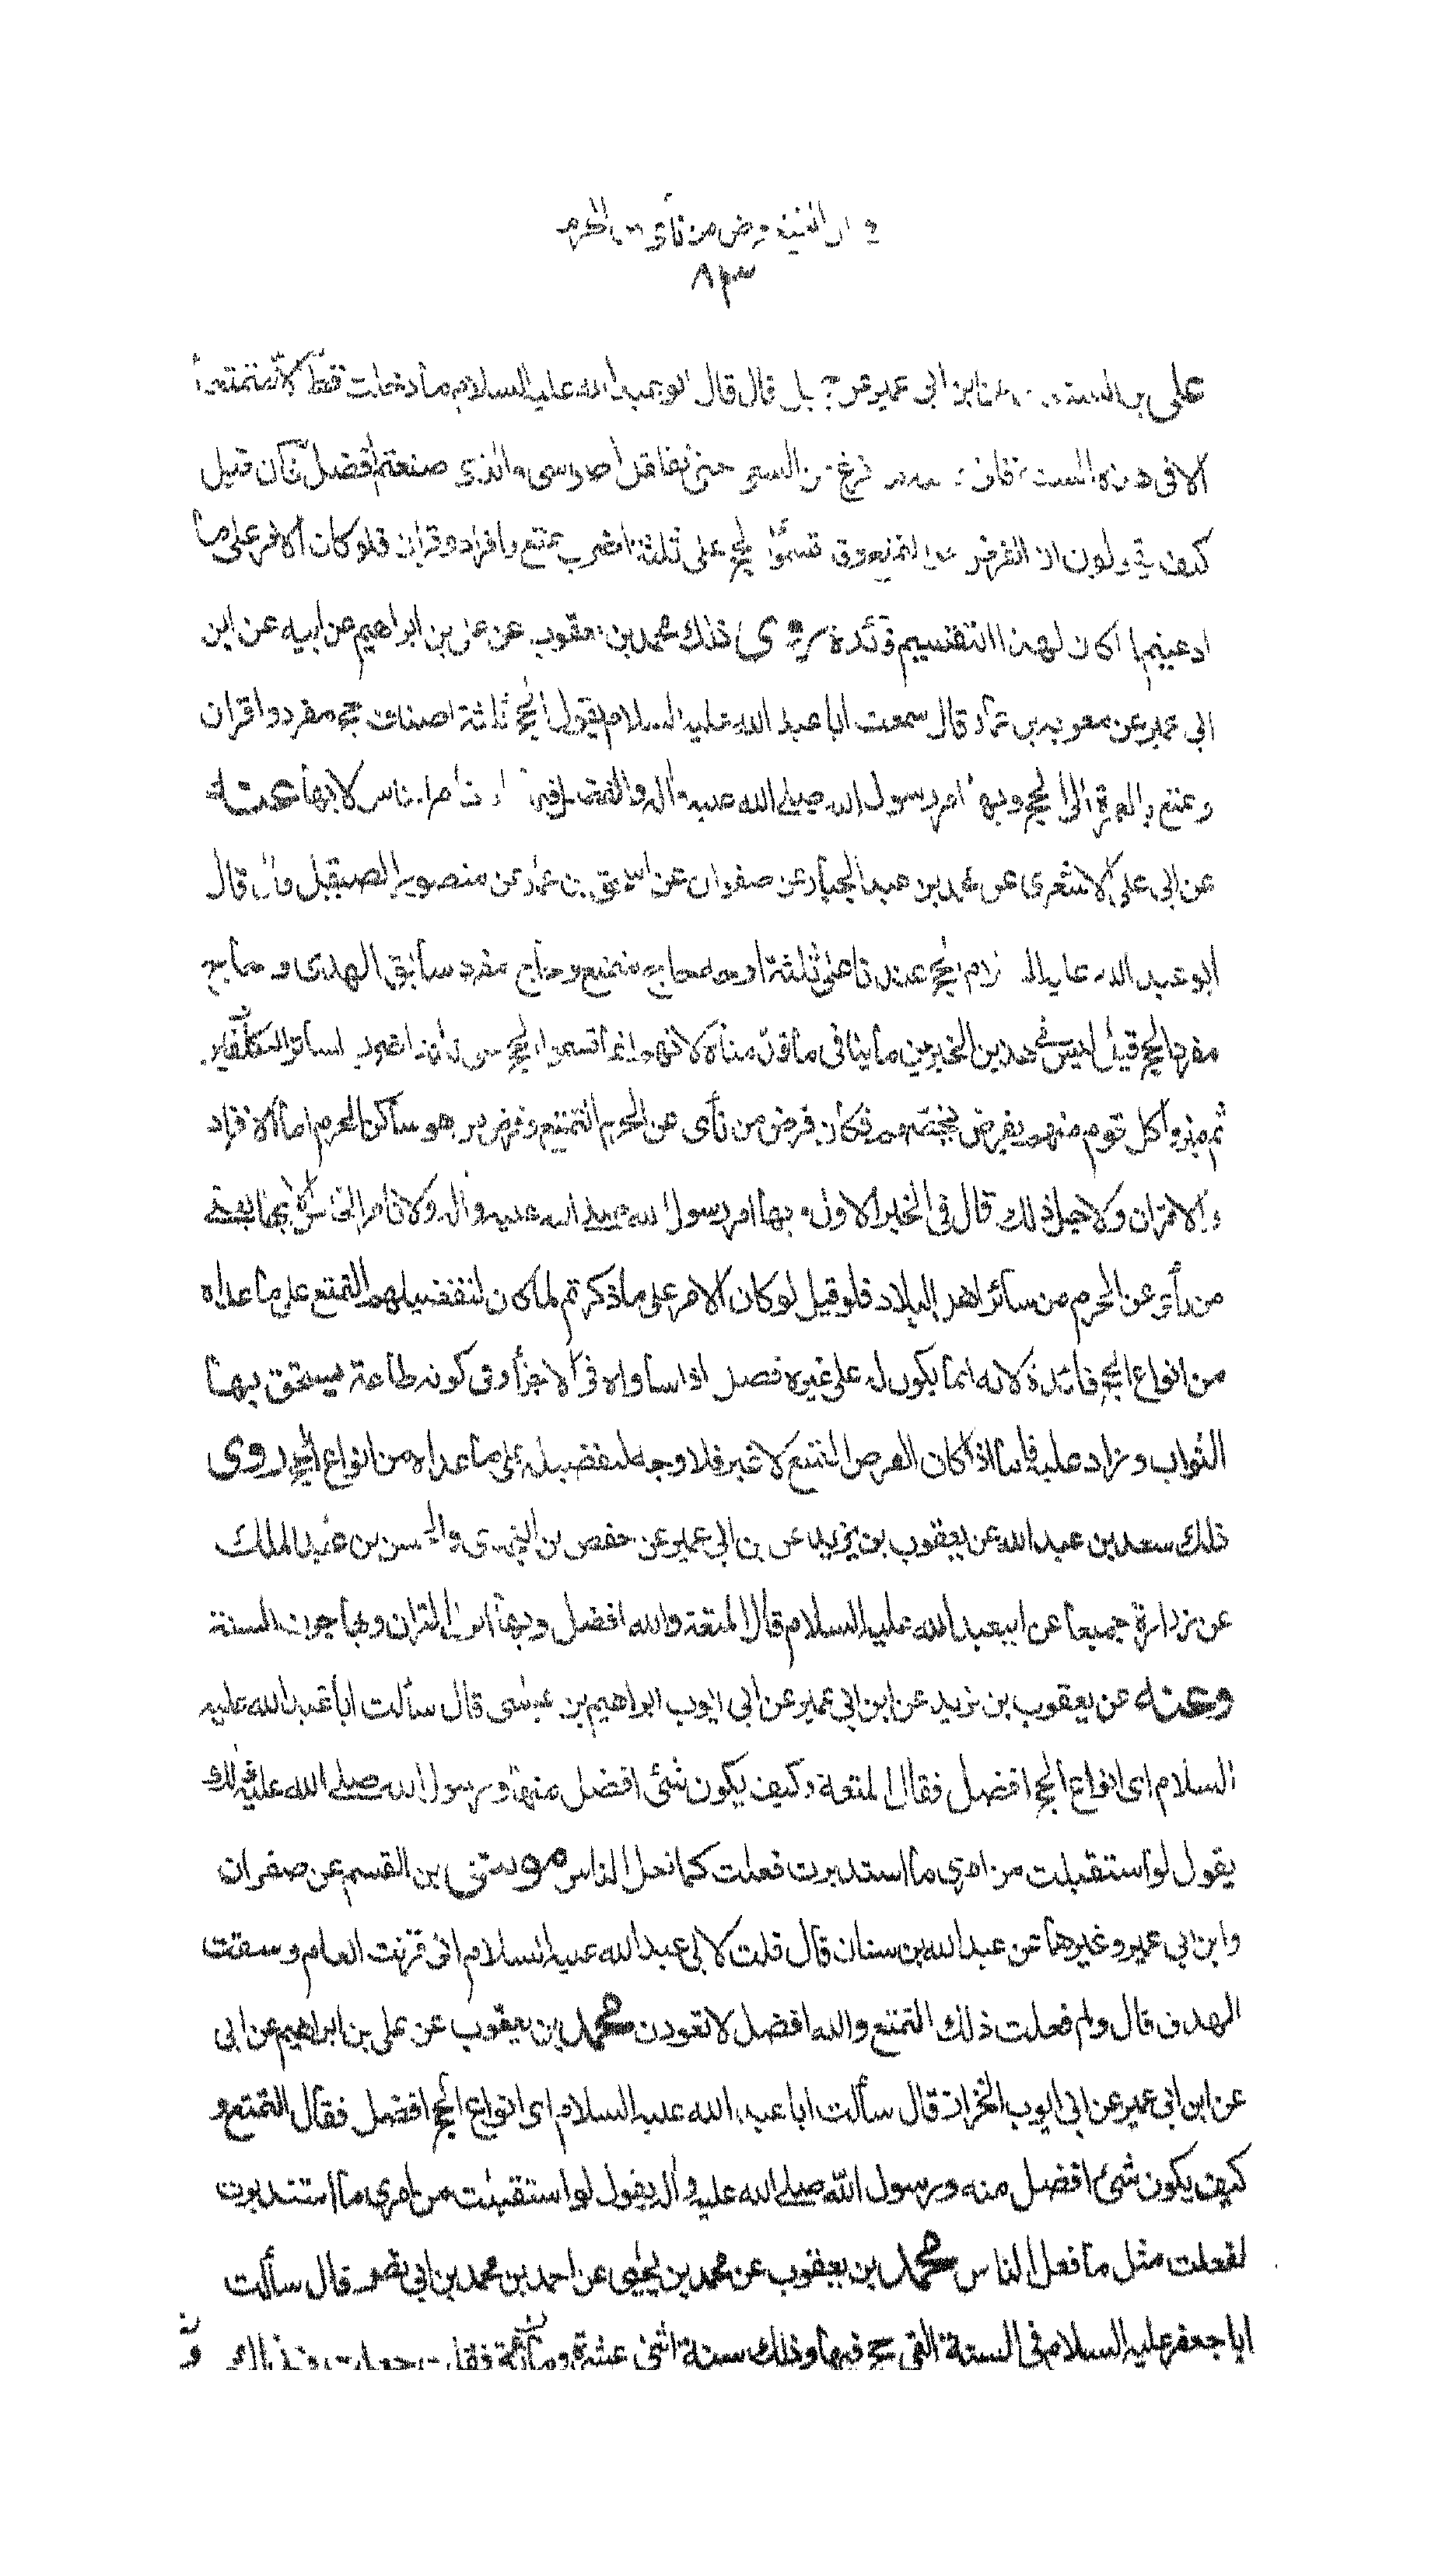 ان التمتع فرض من نأى عن الحرم
٨٣
على بن السندى عن ابن ابى عمير عن جميل قال قال ابو عبد الله عليه السلام ما دخلت قط الا متمتعا
الا فى هذه السنة فانى والله ما افرغ من السعى حتى تتقلقل اضراسى والذى صنعتم افضل فان قيل
كيف تقولون ان الفرض هو التمتع وقد قسموا الحج على ثلثة اضرب تمتع وافراد وقران فلو كان الامر على ما
ادعيتم لما كان لهذا التقسيم فائدة روى ذلك محمد بن يعقوب عن على بن ابراهيم عن ابيه عن ابن
ابى عمير عن معوية بن عمار قال سمعت ابا عبد الله عليه السلام يقول الحج ثلثة اصناف حج مفرد واقران
وتمتع بالعمرة الى الحج وبها امر رسول الله صلى الله عليه واله والفضل فيها ولا نامر الناس الا بها عنه
عن ابى على الاشعرى عن محمد بن عبد الجبار عن صفوان عن اسحق بن عمار عن منصور الصيقل قال قال
ابو عبد الله عليه السلام الحج عندنا على ثلثة اوجه حاج متمتع وحاج مفرد سائق الهدى وحاج
مفرد الحج قيل ليس فى هذين الخبرين ما ينافى ما قدمناه لانهم انما قسموا الحج على ثلثة اضرب لسائر المكلفين
ثم ميزوا كل قوم منهم بفرض يختصهم فكان فرض من نأى عن الحرم التمتع وفرض من هو ساكن الحرم اما الافراد
والاقران ولاجل ذلك قال فى الخبر الاول وبها امر رسول الله صلى الله عليه واله ولا نامر الناس الا بها يعنى
من نأى عن الحرم من سائر اهل البلاد فلو قيل لو كان الامر على ما ذكرتم لما كان لتفضيلهم التمتع على ما عداه
من انواع الحج فائدة لانه انما يكون له على غيره فضل اذا ساواه فى الاجزاء وفى كونه طاعة يستحق بها
الثواب وزاد عليه فاما اذا كان الفرض التمتع لا غير فلا وجه لتفضيله على ما عداه من انواع الحج روى
ذلك سعد بن عبد الله عن يعقوب بن يزيد عن ابن ابى عمير عن حفص بن البخترى والحسن بن عبد الملك
عن زرارة جميعا عن ابى عبد الله عليه السلام قال المتعة والله افضل وبها نزل القران وبها جرت السنة
وعنه عن يعقوب بن يزيد عن ابن ابى عمير عن ابى ايوب ابراهيم بن عيسى قال سألت ابا عبد الله عليه
السلام اى انواع الحج افضل فقال المتعة وكيف يكون شئ افضل منها ورسول الله صلى الله عليه واله
يقول لو استقبلت من امرى ما استدبرت فعلت كما فعل الناس موسى بن القسم عن صفوان
وابن ابى عمير وغيرهما عن عبد الله بن سنان قال قلت لابى عبد الله عليه السلام انى قرنت العام وسقت
الهدى قال ولم فعلت ذلك التمتع والله افضل لا تعودن محمد بن يعقوب عن على بن ابراهيم عن ابى
عن ابن ابى عمير عن ابى ايوب الخزاز قال سألت ابا عبد الله عليه السلام اى انواع الحج افضل فقال التمتع و
كيف يكون شئ افضل منه ورسول الله صلى الله عليه واله يقول لو استقبلت من امرى ما استدبرت
لفعلت مثل ما فعل الناس محمد بن يعقوب عن محمد بن يحيى عن احمد بن محمد بن ابى نصر قال سألت
ابا جعفر عليه السلام فى السنة التى حج فيها وذلك سنة اثنى عشرة ومأتين فقلت جعلت فداك